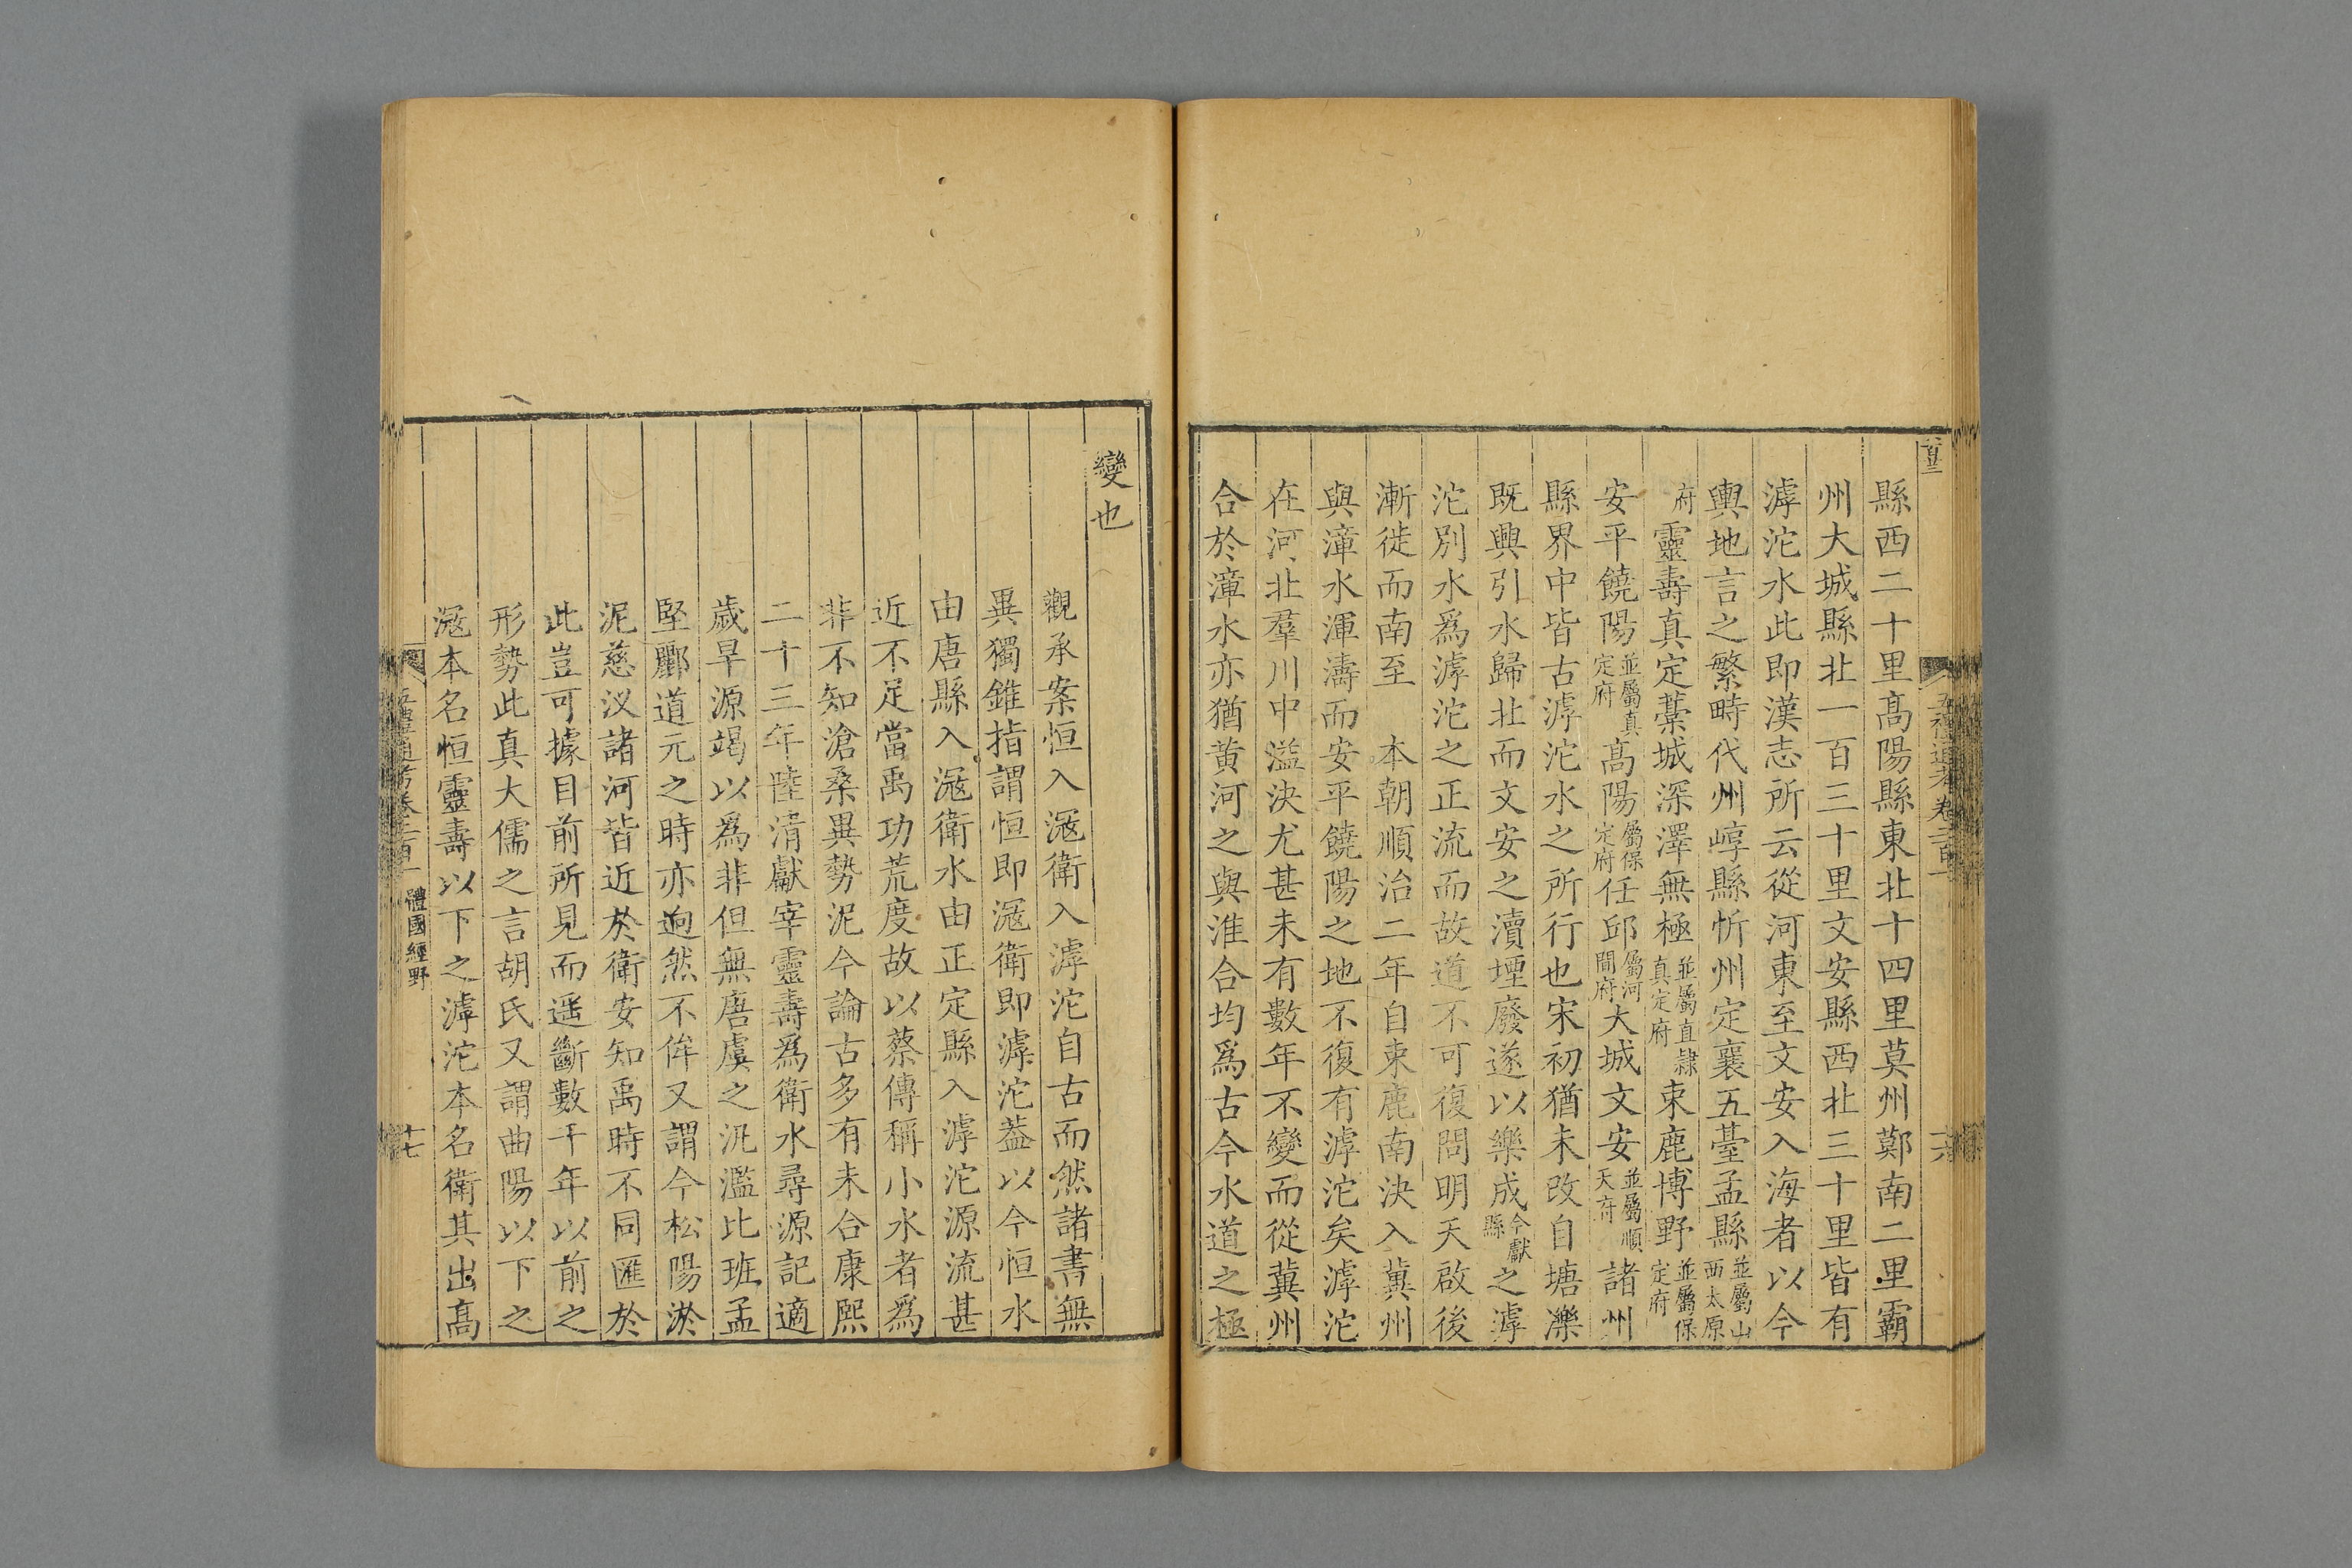 縣西二十里高陽縣東北十四里莫州鄚南二里霸
州大城縣北一百三十里文安縣西北三十里皆有
滹沱水此即漢志所云從河東至文安入海者以今
輿地言之繁畤代州崞縣忻州定襄五臺孟縣並屬山西太原
府靈壽真定藁城深澤無極並屬直隸真定府束鹿博野並屬保定府
安平饒陽並屬真定府高陽屬保定府任邱屬河間府大城文安並屬順天府諸州
縣界中皆古滹沱水之所行也宋初猶未改自塘濼
既興引水歸北而文安之瀆堙廢遂以樂成今獻縣之滹
沱別水爲滹沱之正流而故道不可復問明天啟後
漸徙而南至 本朝順治二年自束鹿南決入冀州
與漳水渾濤而安平饒陽之地不復有滹沱矣滹沱
在河北羣川中溢決尤甚未有數年不變而從冀州
合於漳水亦猶黄河之與淮合均爲古今水道之極
五禮通考卷二百一
十六
變也
觀承案恒入滱衛入滹沱自古而然諸書無
異獨錐指謂恒即滱衛即滹沱葢以今恒水
由唐縣入滱衛水由正定縣入滹沱源流甚
近不足當禹功荒度故以蔡傳稱小水者爲
非不知滄桑異勢泥今論古多有未合康熙
二十三年陸清獻宰靈壽爲衛水尋源記適
歲旱源竭以爲非但無唐虞之汎濫比班孟
堅酈道元之時亦逈然不侔又謂今松陽淤
泥慈汊諸河皆近於衛安知禹時不同匯於
此豈可據目前所見而遥斷數千年以前之
形勢此真大儒之言胡氏又謂曲陽以下之
滱本名恒靈壽以下之滹沱本名衛其出高
五禮通考卷二百一 體國經野
十七